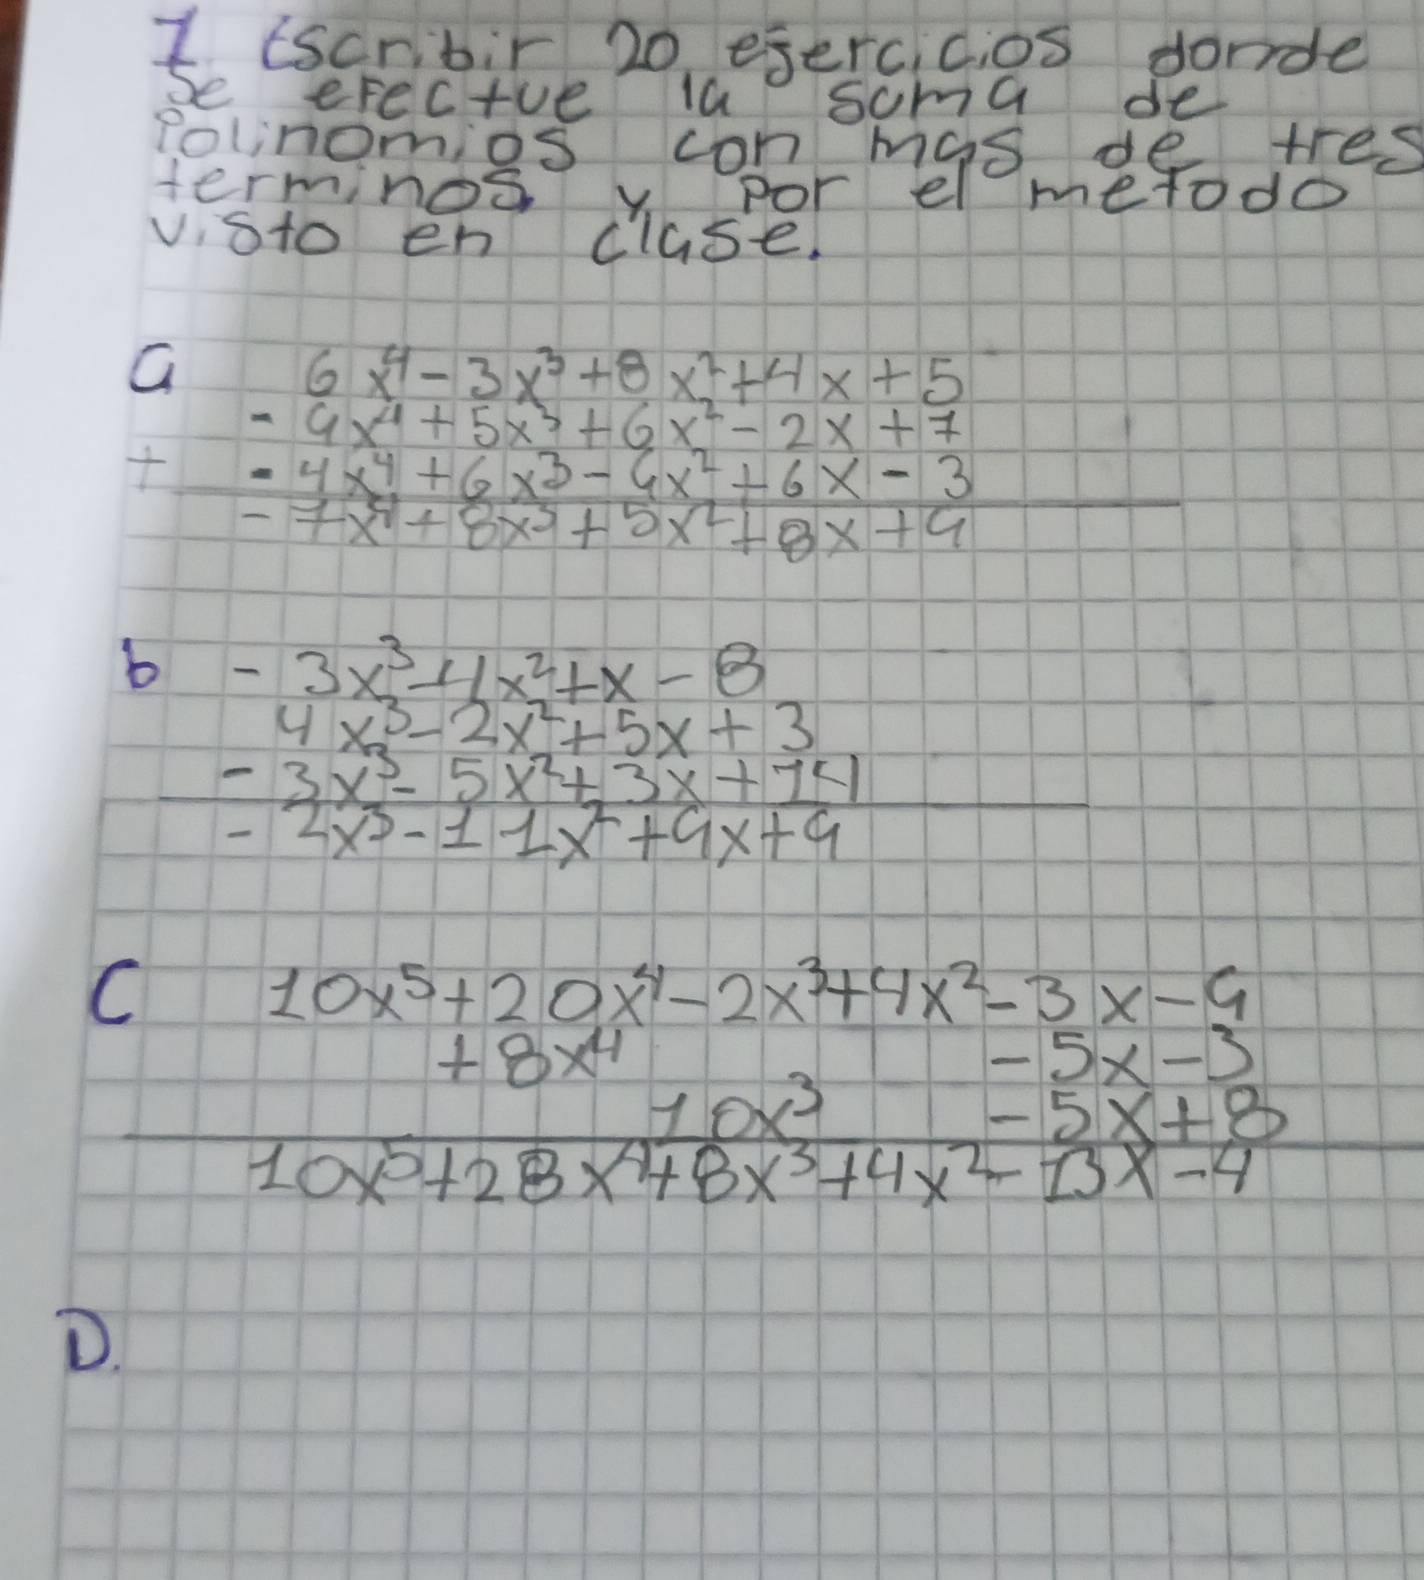 1. Escribir 20 ejercicios donde
se efectue la suma de
Polinomios con mas de tres
terminos y por el metodo
visto en clase.
a 6x⁴ - 3x³ + 8x² + 4x + 5
- 9x⁴ + 5x³ + 6x² - 2x + 7
+ - 4x⁴ + 6x³ - 9x² + 6x - 3
- 7x⁴ + 8x³ + 5x² + 8x + 9
b - 3x³ - 4x² + x - 8
4x³ - 2x² + 5x + 3
- 3x³ - 5x² + 3x + 14
- 2x³ - 11x² + 9x + 9
C 10x⁵ + 20x⁴ - 2x³ + 4x² - 3x - 9
+ 8x⁴ - 5x - 3
10x³ - 5x + 8
10x⁵ + 28x⁴ + 8x³ + 4x² - 13x - 4
D.